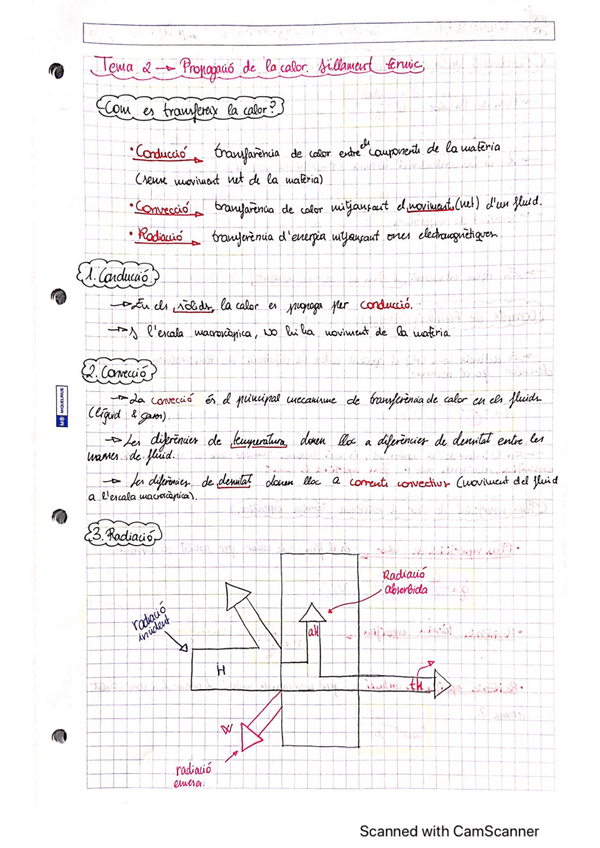 Tema 2 → Propagació de la calor. Aïllament tèrmic.
Com es transfereix la calor?
• Conducció transferència de calor entre els components de la matèria
(sense moviment net de la matèria)
• Convecció transferència de calor mitjançant el moviment (net) d'un fluid.
• Radiació transferència d'energia mitjançant ones electromagnètiques
1. Conducció
→ En els sòlids, la calor es propaga per conducció.
→ A l'escala macroscòpica, no hi ha moviment de la matèria
2. Convecció
→ La convecció és el principal mecanisme de transferència de calor en els fluids
(líquid & gasos).
→ Les diferències de temperatura donen lloc a diferències de densitat entre les
masses de fluid.
→ Les diferències de densitat donen lloc a corrents convectius (moviment del fluid
a l'escala macroscòpica).
3. Radiació
Radiació
absorbida
radiació
incident
aH
H
tH
W
radiació
emesa.
MIQUELRIUS
Scanned with CamScanner